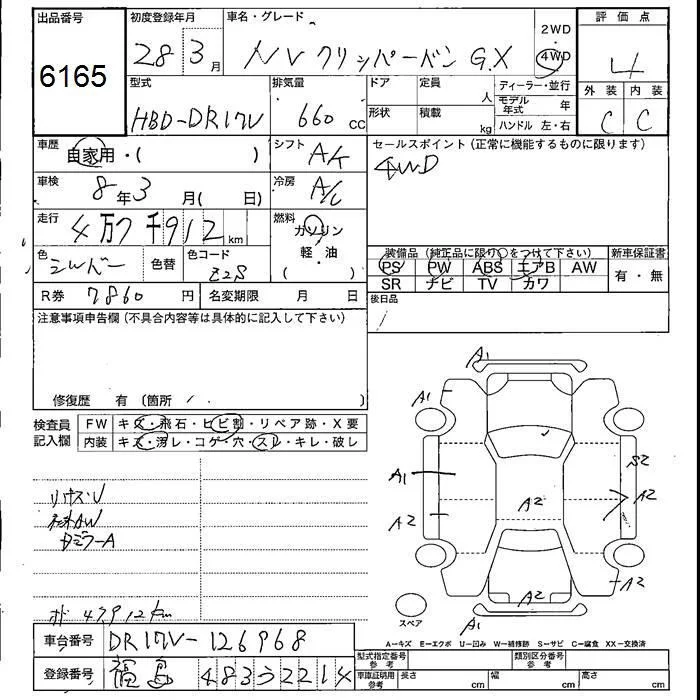 出品番号
6165
初度登録年月
28年3月
車名・グレード
NVクリッパーバン GX
2WD
・
4WD
評価点
4
外装 内装
C C
型式
HBD-DR17V
排気量
660 cc
ドア 定員 人
形状 積載 kg
ディーラー・並行
モデル年式 年
ハンドル 左・右
車歴
自家用・( )
シフト
AK
セールスポイント(正常に機能するものに限ります)
4WD
車検
8年3月( 日)
冷房
A/C
走行
4万7千912km
燃料
ガソリン
軽・油
( )
色
シルバー
色替
色コード
Z2S
装備品(純正品に限り○をつけて下さい)
PS PW ABS エアB AW
SR ナビ TV カワ
新車保証書
有・無
R券 7860円
名変期限 月 日
後日品
注意事項申告欄(不具合内容等は具体的に記入して下さい)
修復歴 有(箇所 )
検査員
記入欄
FW キズ・飛石・ヒビ割・リペア跡・X要
内装 キズ・汚レ・コゲ・穴・スレ・キレ・破レ
47912km
A1
A1
A1
A2
A2
S2
A2
A2
A2
A1
スペア
A-キズ E-エクボ U-凹み W-補修跡 S-サビ C-腐食 XX-交換済
車台番号
DR17V-126968
登録番号
福島 483 う 2214
型式指定番号
参考
類別区分番号
参考
車庫証明用
参考
長さ cm 幅 cm 高さ cm